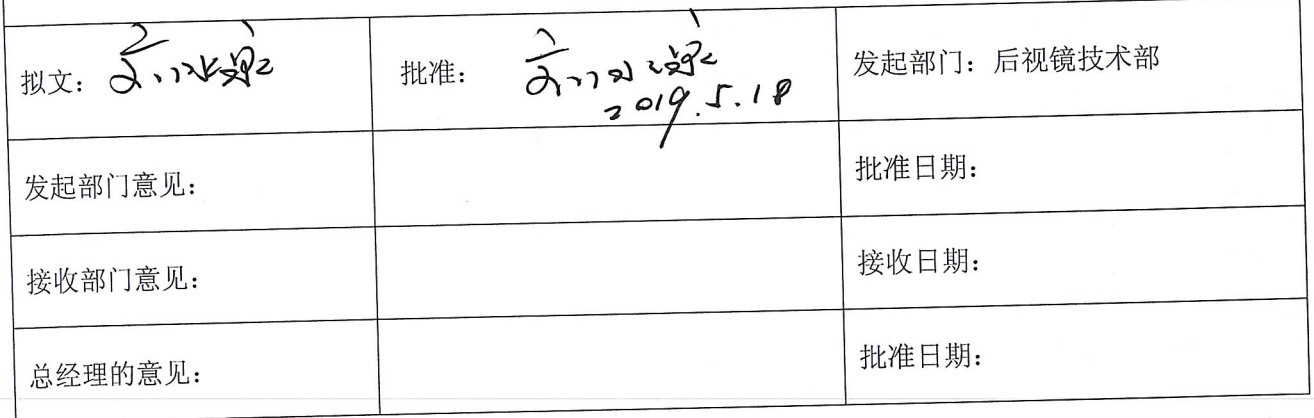 拟文：
批准：
2019.5.18
发起部门：后视镜技术部
发起部门意见：
批准日期：
接收部门意见：
接收日期：
总经理的意见：
批准日期：